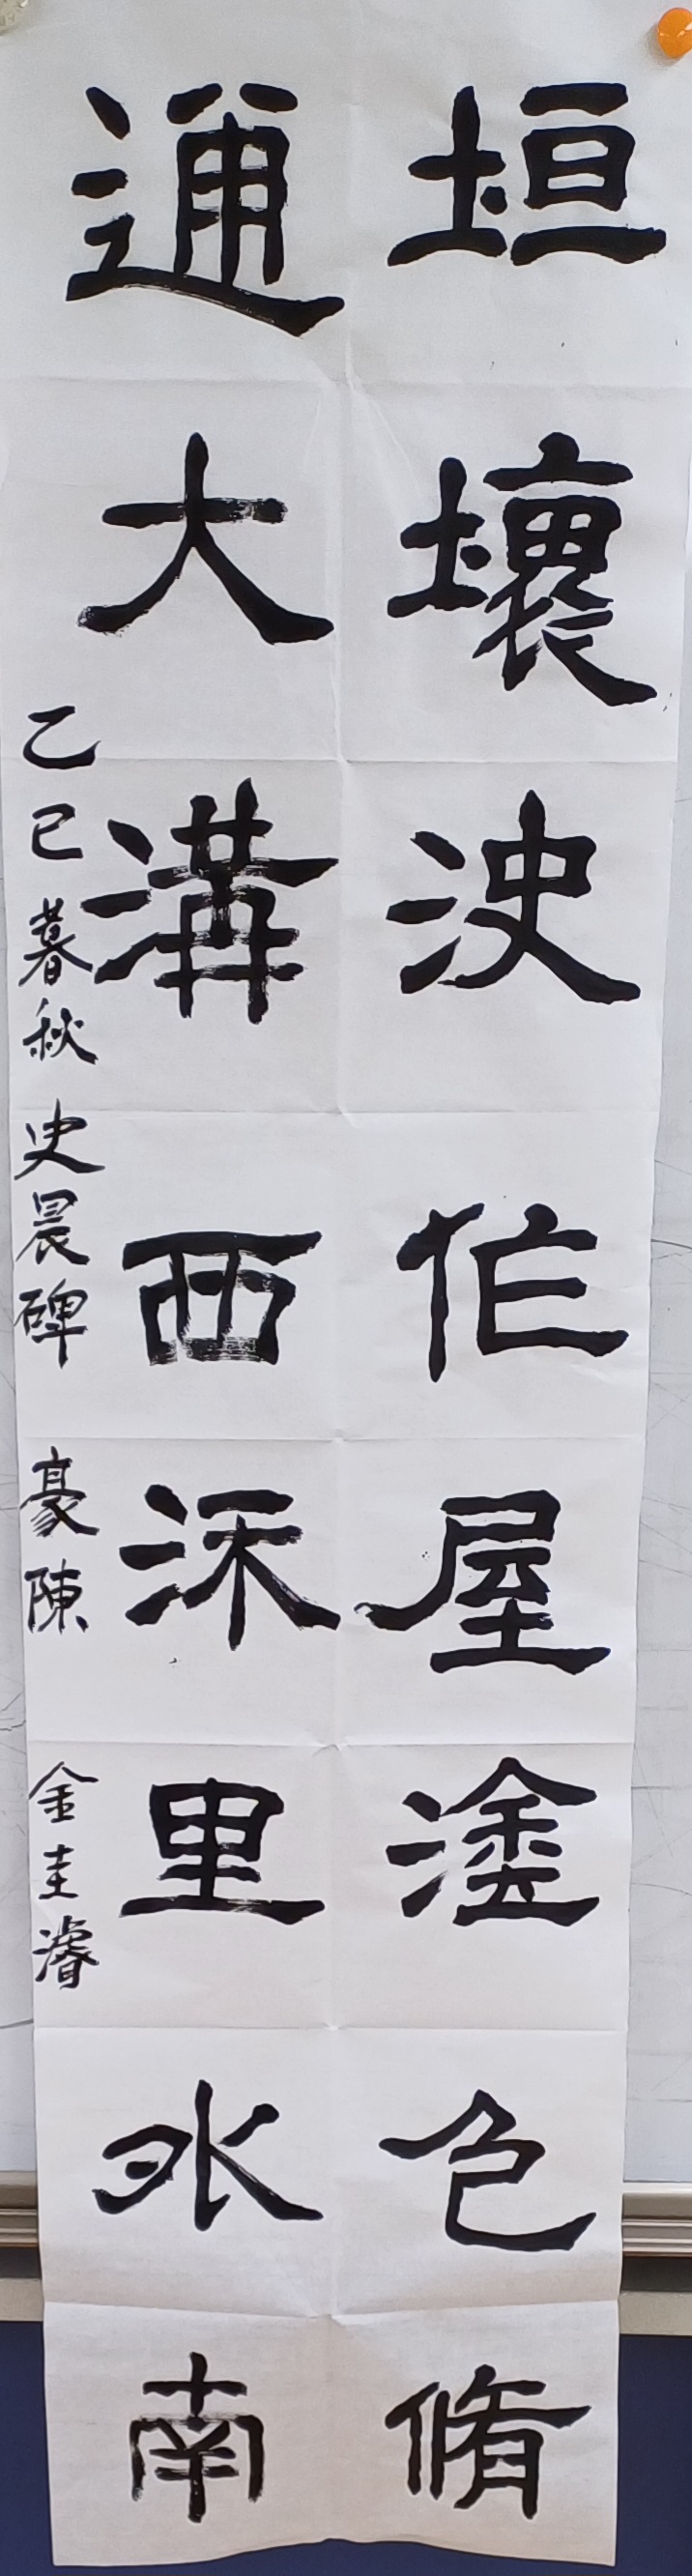 垣壞決作屋塗色脩
通大溝西流里外南
乙巳暮秋 史晨碑 豪陳 金圭濬